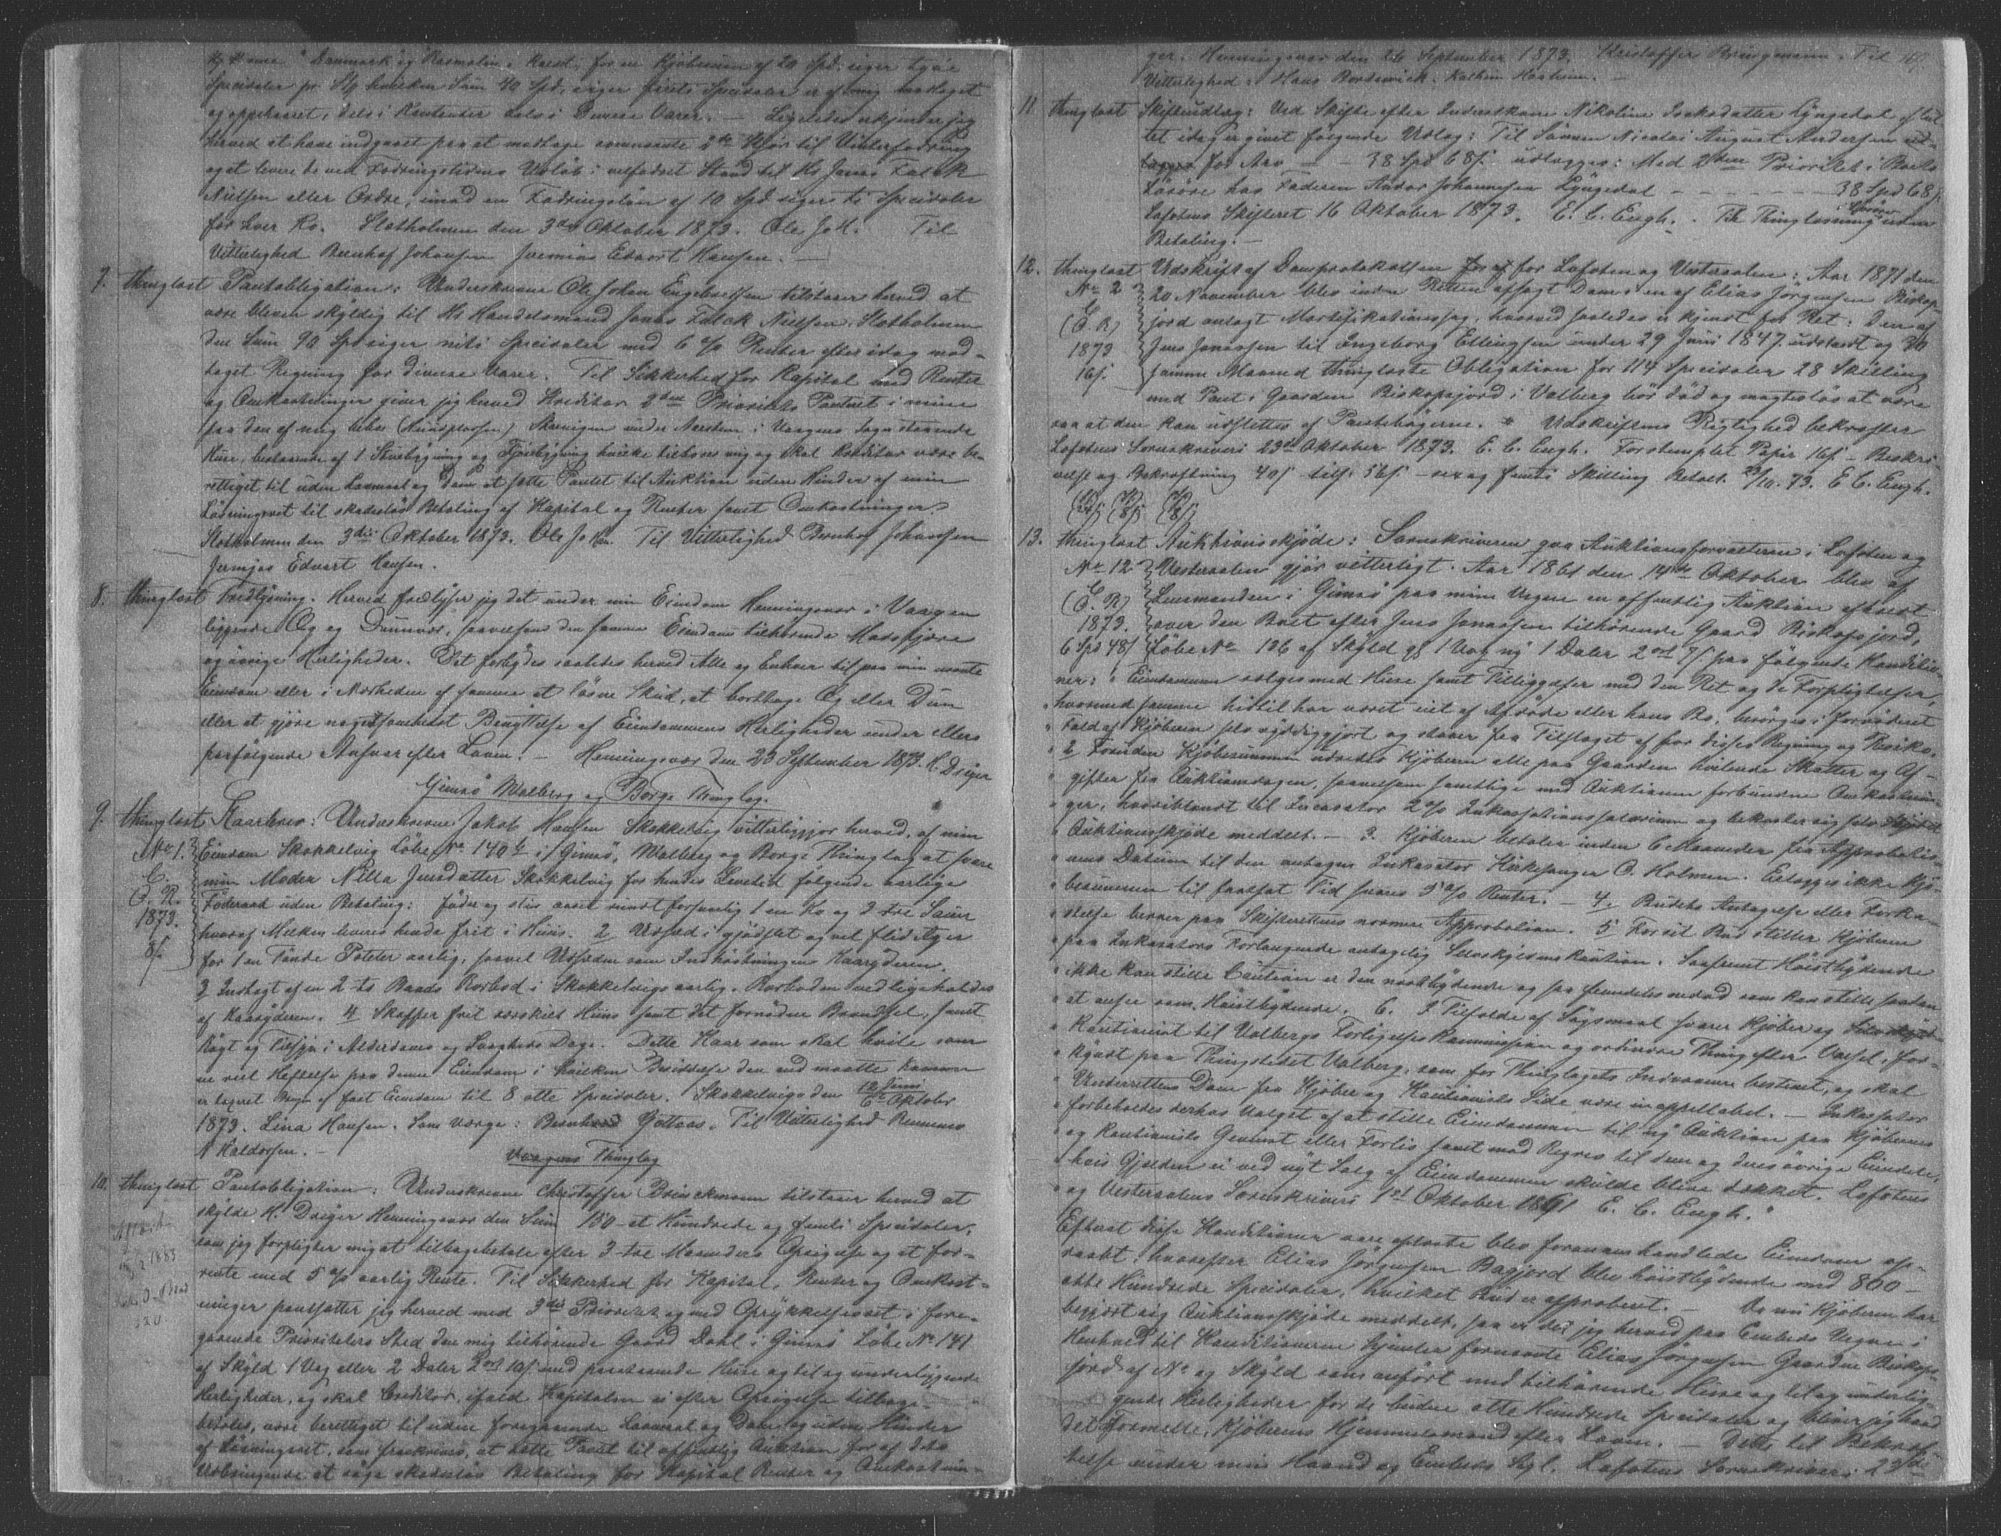 Specidaler pr. Stk hvilken Sum 40 Spd, siger firети Specidaler er af mig modtaget
og oppebaaret, dels i Kontanter dels i Diverse Varer. — Ligeledes erkjender jeg
herved at have indgaaet paa at modtage ovennævnte 2de til Vinterfodring
og at levere de ved Fodringstidens Udløb i velfødet Stand til Hr Jonas Falck
Nielsen eller Ordre, imod en Fodringsløn af 10 Spd siger ti Specidaler
for hver Ko. Slotholmen den 3die Oktober 1873. Ole Joh. Til
Vitterlighed Bernhof Johansen Jeremias Edvart Hansen. —
7. thinglæst Pantobligation: Underskrevne Ole Johan Engebretsen tilstaar herved at
være bleven skyldig til Hr Handelsmand Jonas Falck Nielsen Slotholmen
den Sum 90 Spd siger niti Specidaler med 6 % Renter efter idag mod-
taget Regning for diverse Varer. Til Sikkerhed for Kapital med Renter
og Omkostninger giver jeg herved Kreditor 2den Prioritets Panteret i mine
paa den af mig under i Vaagens Sogn staaende
Huse, bestaaende af 1 Stuebygning og Fjøsbygning hvilke tilhøre mig og skal Kreditor være be-
rettiget til uden Lovmaal og Dom at sætte Pantet til Auktion uden Hinder af min
Løsningsret til skadesløs Betaling af Kapital og Renter samt Omkostninger.
Slotholmen den 3die Oktober 1873. Ole Joh. Til Vitterlighed Bernhof Johansen
Jermias Edvart Hansen.
8. thinglæst Fredlysning. Herved fredlyser jeg det under min Eiendom Henningsvær i Vaagen
liggende Æg og Dunvær, saavelsom den samme Eiendom tilhørende
og øvrige Herligheder. Det forbydes saaledes herved Alle og Enhver til paa min nævnte
Eiendom eller i Nærheden af samme at løsne Skud, at borttage Æg eller Dun
eller at gjøre nogetsomhelst Benyttelse af Eiendommens Herligheder under ellers
paafølgende Ansvar efter Loven. — Henningsvær den 23 September 1873. H. Dreyer
Gimsø Valberg og Borge Thinglag.
9. thinglæst Kaarbrev: Underskrevne Jakob Hansen Skokkelvig vitterliggjør herved, af min
No 1. Eiendom Skokkelvig Løbe No 140 b i Gimsø, Valberg og Borge Thinglag at svare
C. min Moder Nilla Jensdatter Skokkelvig for hendes Levetid følgende aarlige
O. R. Føderaad uden Betaling: føde og stir
1873. hvoraf Melken leveres hende frit i Huus. 2 Udsæd i gjødslet og vel flid Ager
8 ß for 1 en Tønde Poteter aarlig, saavel Udsæden som Indhøstningen Kaaryderen.
3 Indtægt af en 2 to Baads Rorbod i Skokkelvig aarlig. Rorboden vedligeholdes
af Kaaryderen. 4 Skaffer frit særskilt Huus samt det fornødne Brændsel, samt
Røgt og Tilsyn i Alderdoms og Svagheds Dage. Dette Kaar som skal hvile som
en reel Heftelse paa denne Eiendom i hvilken Besiddelse den end maatte komme
er taxeret Brug af fast Eiendom til 8 otte Specidaler. Skokkelvig den 12 Juni 6te Oktober
1873. Lina Hansen. Som Værge: Bernhard Til Vitterlighed
N Haldorsen. —
Vaagens Thinglag
10. thinglæst Pantobligation: Underskrevne Christoffer Brinckmann tilstaar herved at
skylde H. Dreyer Henningsvær den Sum 150 et Hundrede og femti Specidaler,
som jeg forpligter mig at tilbagebetale efter 3 tre Maaneders Opsigelse og at for-
rente med 5 % aarlig Rente. Til Sikkerhed for Kapital, Renter og Omkost-
ninger pantsætter jeg herved med 3die Prioritet og med Oprykkelsesret i fore-
gaaende Prioriteters Sted den mig tilhørende Gaard Dahl i Gimsø Løbe No 141
af Skyld 1 Vog eller 2 Daler 2 ort 10 ß med paastaaende Huse og til og underliggende
Herligheder, og skal Creditor, ifald Kapitalen ei efter Opsigelse tilbage-
betales, være berettiget til uden foregaaende Lovmaal og Dom og uden Hinder
af Løsningsret, som fraskrives, at sætte Pantet til offentlig Auktion for af dets
Udbringende at søge skadesløs Betaling for Kapital Renter og Omkostnin-
ger. Henningsvær den 26 September 1873. Kristoffer Bringmann. Til
Vitterlighed: Hans Bordewick.
11. thinglæst Skifteudlæg: Ved Skifte efter Inderstkone Nikoline Isaksdatter Lyngedal afslut-
tet idag er givet følgende Udlæg: Til Sønnen Nicolai August Andersen ud-
for Arv — — 38 Spd 68 ß. udlægges: Med 2den Prioritet i Boets
Løsøre hos Faderen Andor Johannesen Lyngedal — — — 38 Spd 68 ß.
Lofotens Skifteret 16 Oktober 1873. E. C. Engh. Til Thinglæsning uden
Betaling. —
12. thinglæst Udskrift af Domsprotokollen for Lofoten og Vesteraalen: Aar 1871 den
No 2 20 November blev inden Retten afsagt Dom i en af Elias Jørgensen Biskop-
C. jord anlagt Mortifikationssag, hvorved saaledes er kjendt for Ret: Den af
(O. R) Jens Jonassen til Ingeborg Ellingsen under 29 Juni 1847 udstædt og 30
1873 samme Maaned thinglæste Obligation for 114 Specidaler 28 Skilling
16 ß. med Pant i Gaarden Biskopsjord i Valberg bør død og magtesløs at være
saa at den kan udslettes af Pantebøgerne. Udskriftens Rigtighed bekræfter
Lofotens Sorenskriveri 23de Oktober 1873. E. C. Engh. Forstemplet Papir 16 ß — Beskri-
velse og Bekræftning 40 ß tils. 56 ß — sex og femti Skilling Betalt. 23/10. 73. E. C. Engh.
13. thinglæst Auktionsskjøde: Sorenskriveren qva Auktionsforvalteren i Lofoten og
No 12 Vesteraalen gjør vitterligt. Aar 1861 den 14de Oktober blev af
C. Lensmanden i Gimsø paa mine Vegne en offentlig Auktion afholdt
(O. R) over den Boet efter Jens Jonassen tilhørende Gaard Biskopsjord,
1873. Løbe No 126 af Skyld 1 Vog ny 1 Daler 2 ort 7 ß paa følgende Konditio-
6 Spd 48 ß ner: 1 Eiendommen sælges med Huse samt Tilliggelser med den Ret og de Forpligtelser,
hvormed samme hidtil har været eiet af Afdøde eller hans Bo, besørges i fornødent
Fald af Kjøberen selv ryddiggjort og staaer fra Tilslaget af for dennes Regning og Risiko.
2 Foruden Kjøbesummen udredes Kjøberen alle paa Gaarden hvilende Skatter og Af-
gifter fra Auktionsdagen, saavelsom samtlige med Auktionen forbundne Omkostnin-
ger, hvoriblandt til Incassator 2 % Inkassationssalærium og bekoster sig selv Skjød
Auktionsskjøde meddelt. — 3. Kjøberen betaler inden 6 Maaneder fra Approbatio-
nens Datum til den antagne Inkassator Kirkesanger O. Holmen. Erlægges ikke Kjø-
besummen til fastsat Tid svares 5 % Renter. — 4. Budets Antagelse eller Forka-
stelse beroer paa Skifterettens nærmere Approbation. 5 For sit Bud stiller Kjøberen
paa Inkassators Forlangende antagelig Selvskyldnerkaution. Saafremt Høistbydende
ikke kan stille Caution er den næstbydende og saa fremdeles nedad som kan stille saadan
at ansee som Høistbydende. 6. I Tilfælde af Søgsmaal svarer Kjøber og Selvskyld-
Kautionist til Valbergs Forligelseskommission og ordinære Thing efter Varsel, for-
kyndt paa Thingstedet Valberg, som for Thinglagets Indvaanere bestemt, og skal
Underrettens Dom fra Kjøber og Kautionists Side være inappellabel. — Inkassator
forbeholdes derhos Valget af at stille Eiendommen til ny Auktion paa Kjøberens
og Kautionists Gevinst eller Forlis samt med Regres til dem og deres øvrige Eiendele,
hvis Gjælden ei ved nyt Salg af Eiendommen skulde blive dækket. Lofotens
og Vesteraalens Sorenskriveri 1ste Oktober 1861 E. C. Engh."
Efterat disse Konditioner vare oplæste blev foranomhandlede Eiendom op-
raabt, hvorefter Elias Jørgensen Bagjord blev høistbydende med 800 —
otte Hundrede Specidaler, hvilket Bud er approberet. — Da nu Kjøberen har
begjært sig Auktionsskjøde meddelt, saa er det jeg herved paa Embeds Vegne i
Henhold til Konditionerne skjøder fornævnte Elias Jørgensen Gaarden Biskops-
jord af No og Skyld som anført med tilhørende Huse og til og underlig-
gende Herligheder for de budne otte Hundrede Specidaler og bliver jeg
Kjøberens Hjemmelsmand efter Loven. — Dette til Bekræf-
telse under min Haand og Embeds Segl. Lofotens Sorenskriveri 23de